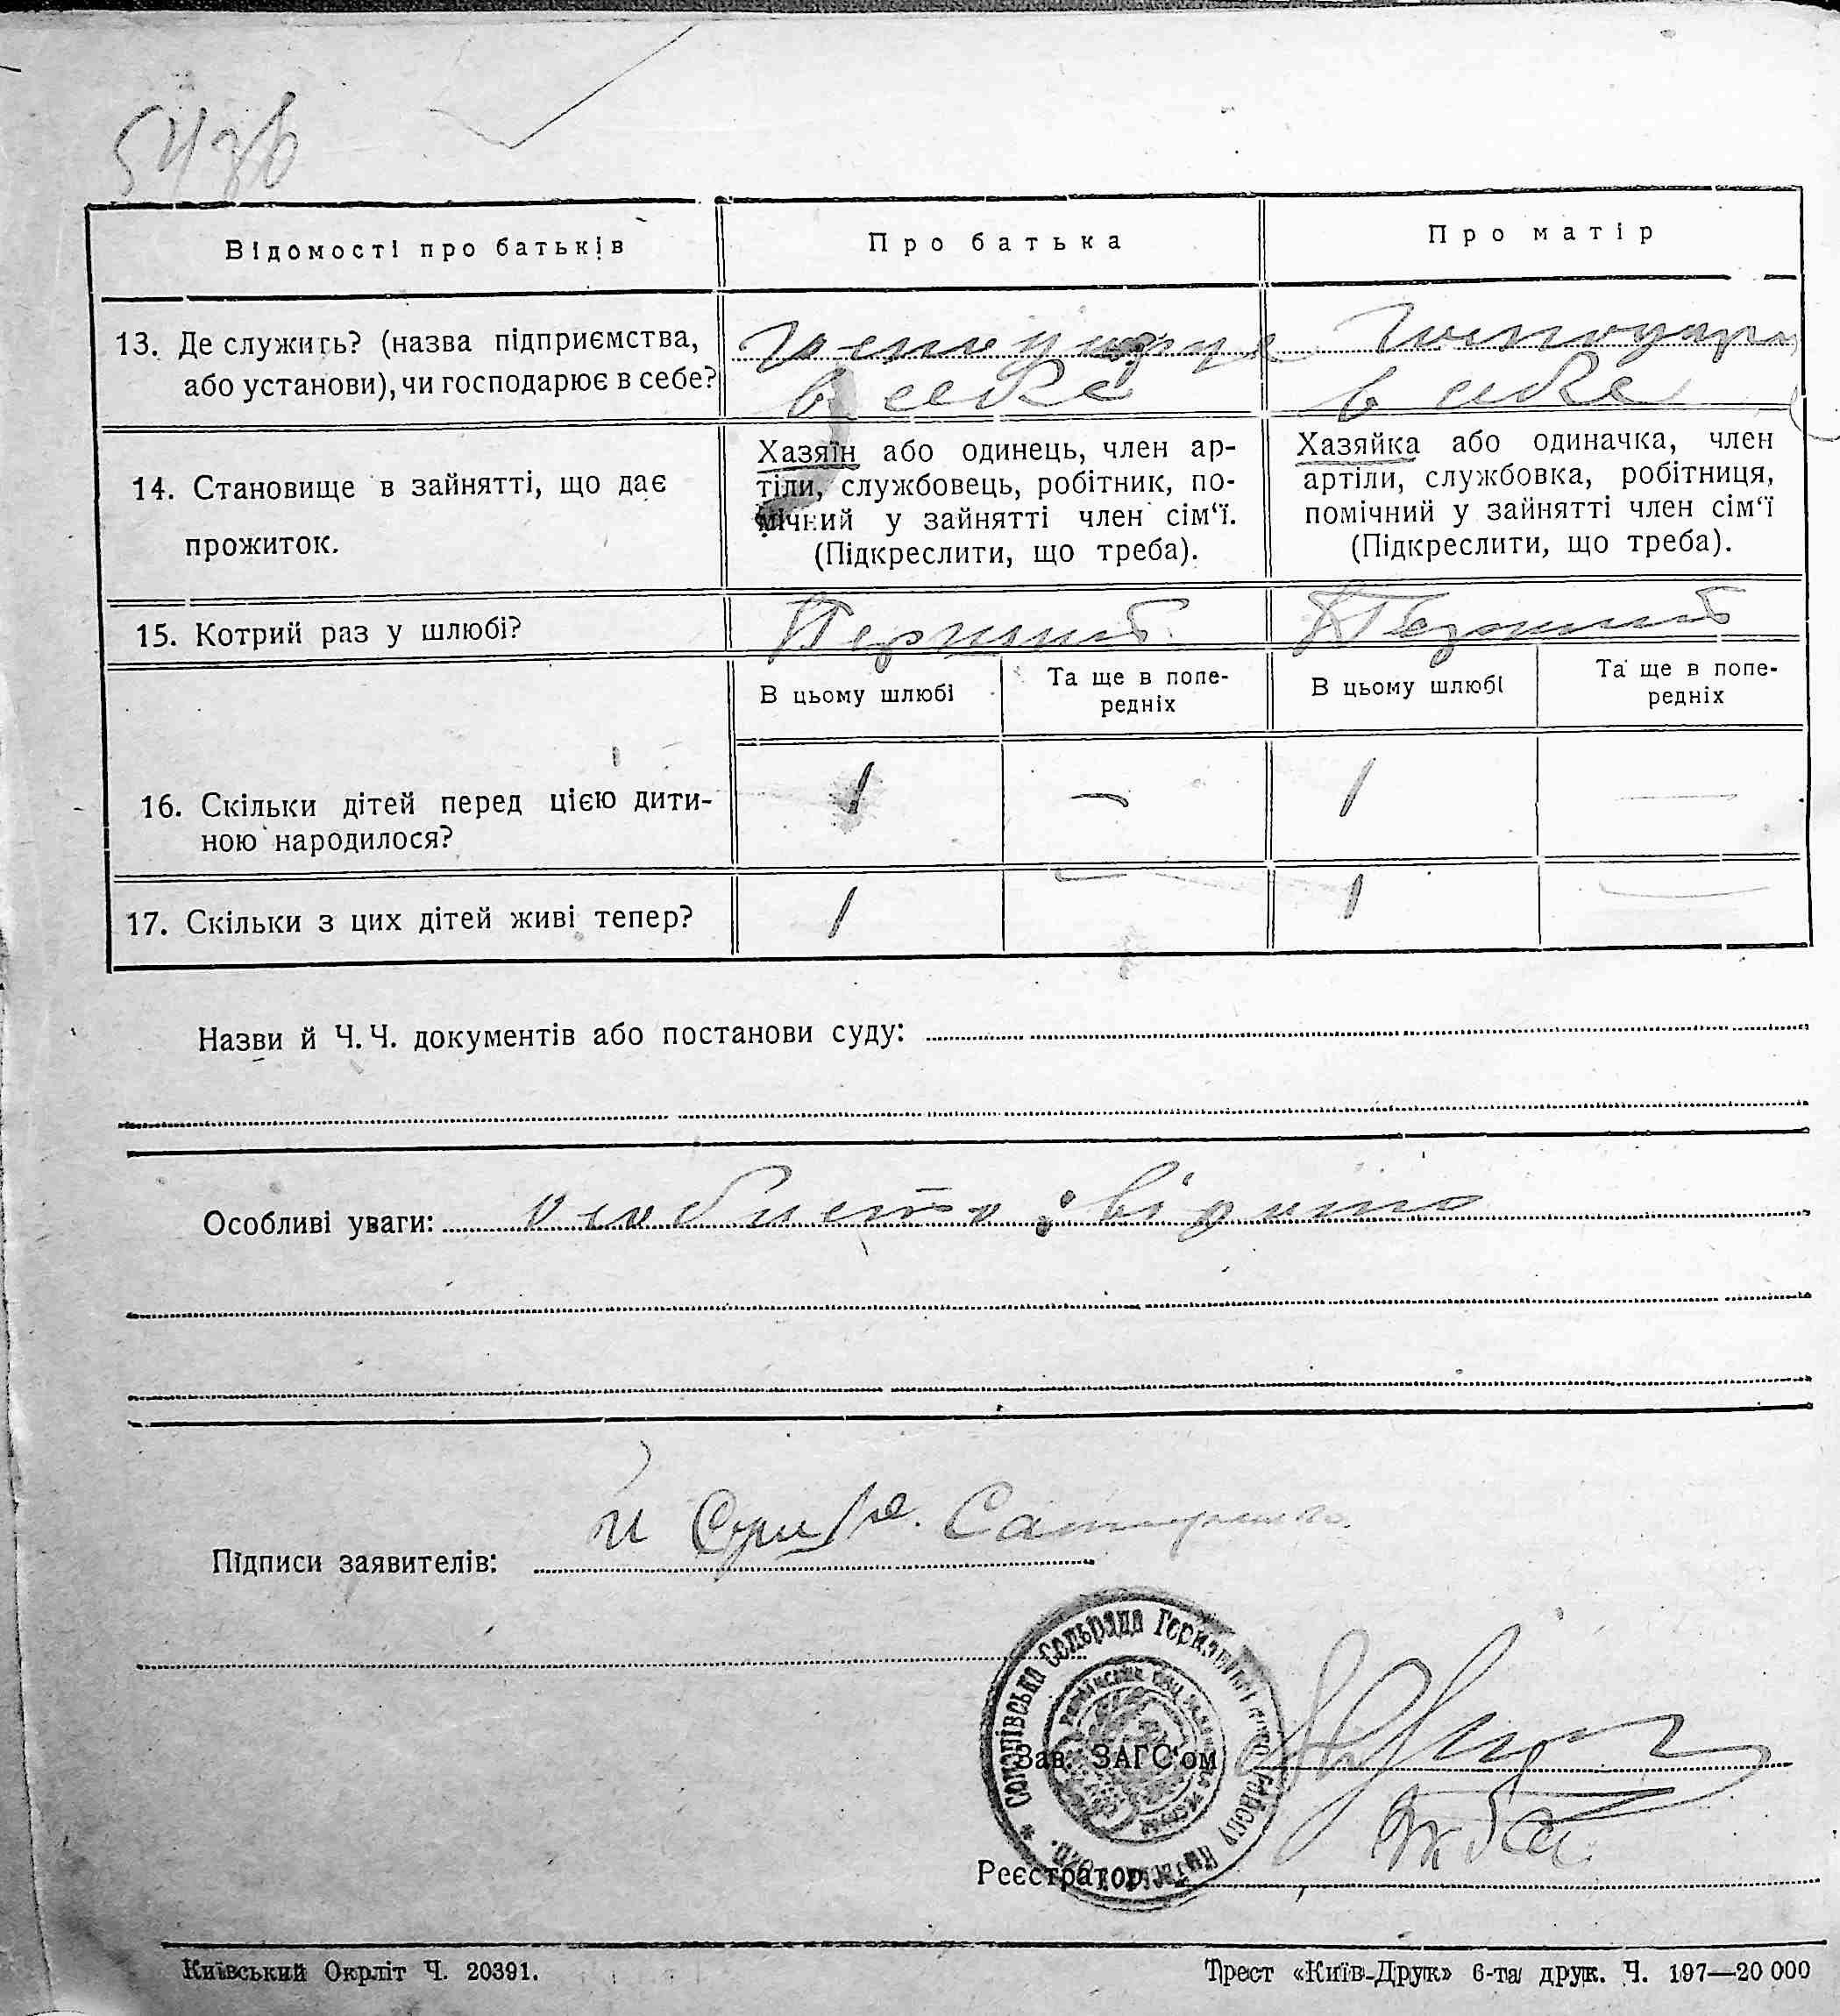 Відомості про батьків
Про батька
Про матір
13. Де служить? (назва підприємства,
або установи), чи господарює в себе?
господарує
в себе
господарує
в себе
14. Становище в зайнятті, що дає
прожиток.
Хазяїн або одинець, член ар-
тіли, службовець, робітник, по-
мічний у зайнятті член сім‘ї.
(Підкреслити, що треба).
Хазяйка або одиначка, член
артіли, службовка, робітниця,
помічний у зайнятті член сім‘ї
(Підкреслити, що треба).
15. Котрий раз у шлюбі?
Перший
В цьому шлюбі
Та ще в попе-
редніх
В цьому шлюбі
Та ще в попе-
редніх
16. Скільки дітей перед цією дити-
ною народилося?
1 — 1 —
17. Скільки з цих дітей живі тепер?
1 — 1 —
Назви й Ч. Ч. документів або постанови суду:
Особливі уваги: особисто: відомо
Підписи заявителів:
Зав. ЗАГС‘ом
Реєстратор
Київський Окрліт Ч. 20391.
Трест «Київ-Друк» 6-та друк. Ч. 197—20 000